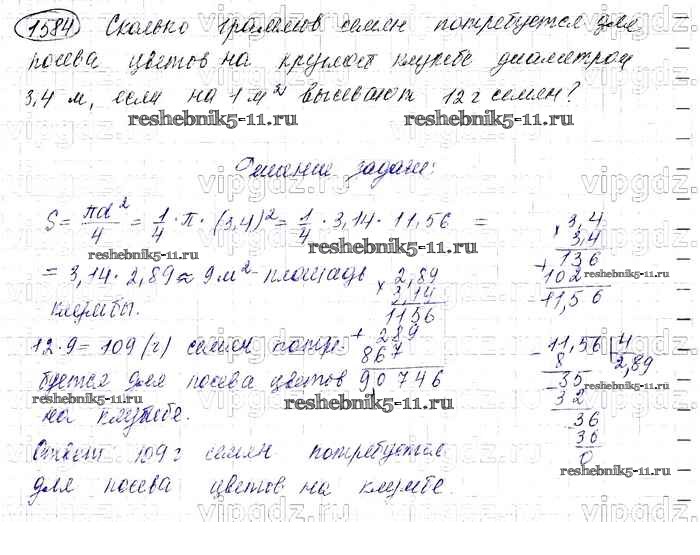 1584 Сколько граммов семян потребуется для
посева цветов на круглой клумбе диаметром
3,4 м, если на 1 м² высевают 12 г семян?
reshebnik5-11.ru reshebnik5-11.ru
Решение задачи:
S = πd²/4 = 1/4 · π · (3,4)² = 1/4 · 3,14 · 11,56 =
= 3,14 · 2,89 ≈ 9 м² - площадь
клумбы.
12 · 9 = 109 (г) семян потре-
буется для посева цветов
на клумбе.
Ответ 109 г семян потребуется
для посева цветов на клумбе.
× 3,4
3,4
+ 136
102
11,56
× 2,89
3,14
1156
+ 289
867
9,0746
- 11,56 | 4
8 2,89
- 35
32
- 36
36
0
reshebnik5-11.ru
reshebnik5-11.ru
reshebnik5-11.ru
reshebnik5-11.ru
vipgdz.ru